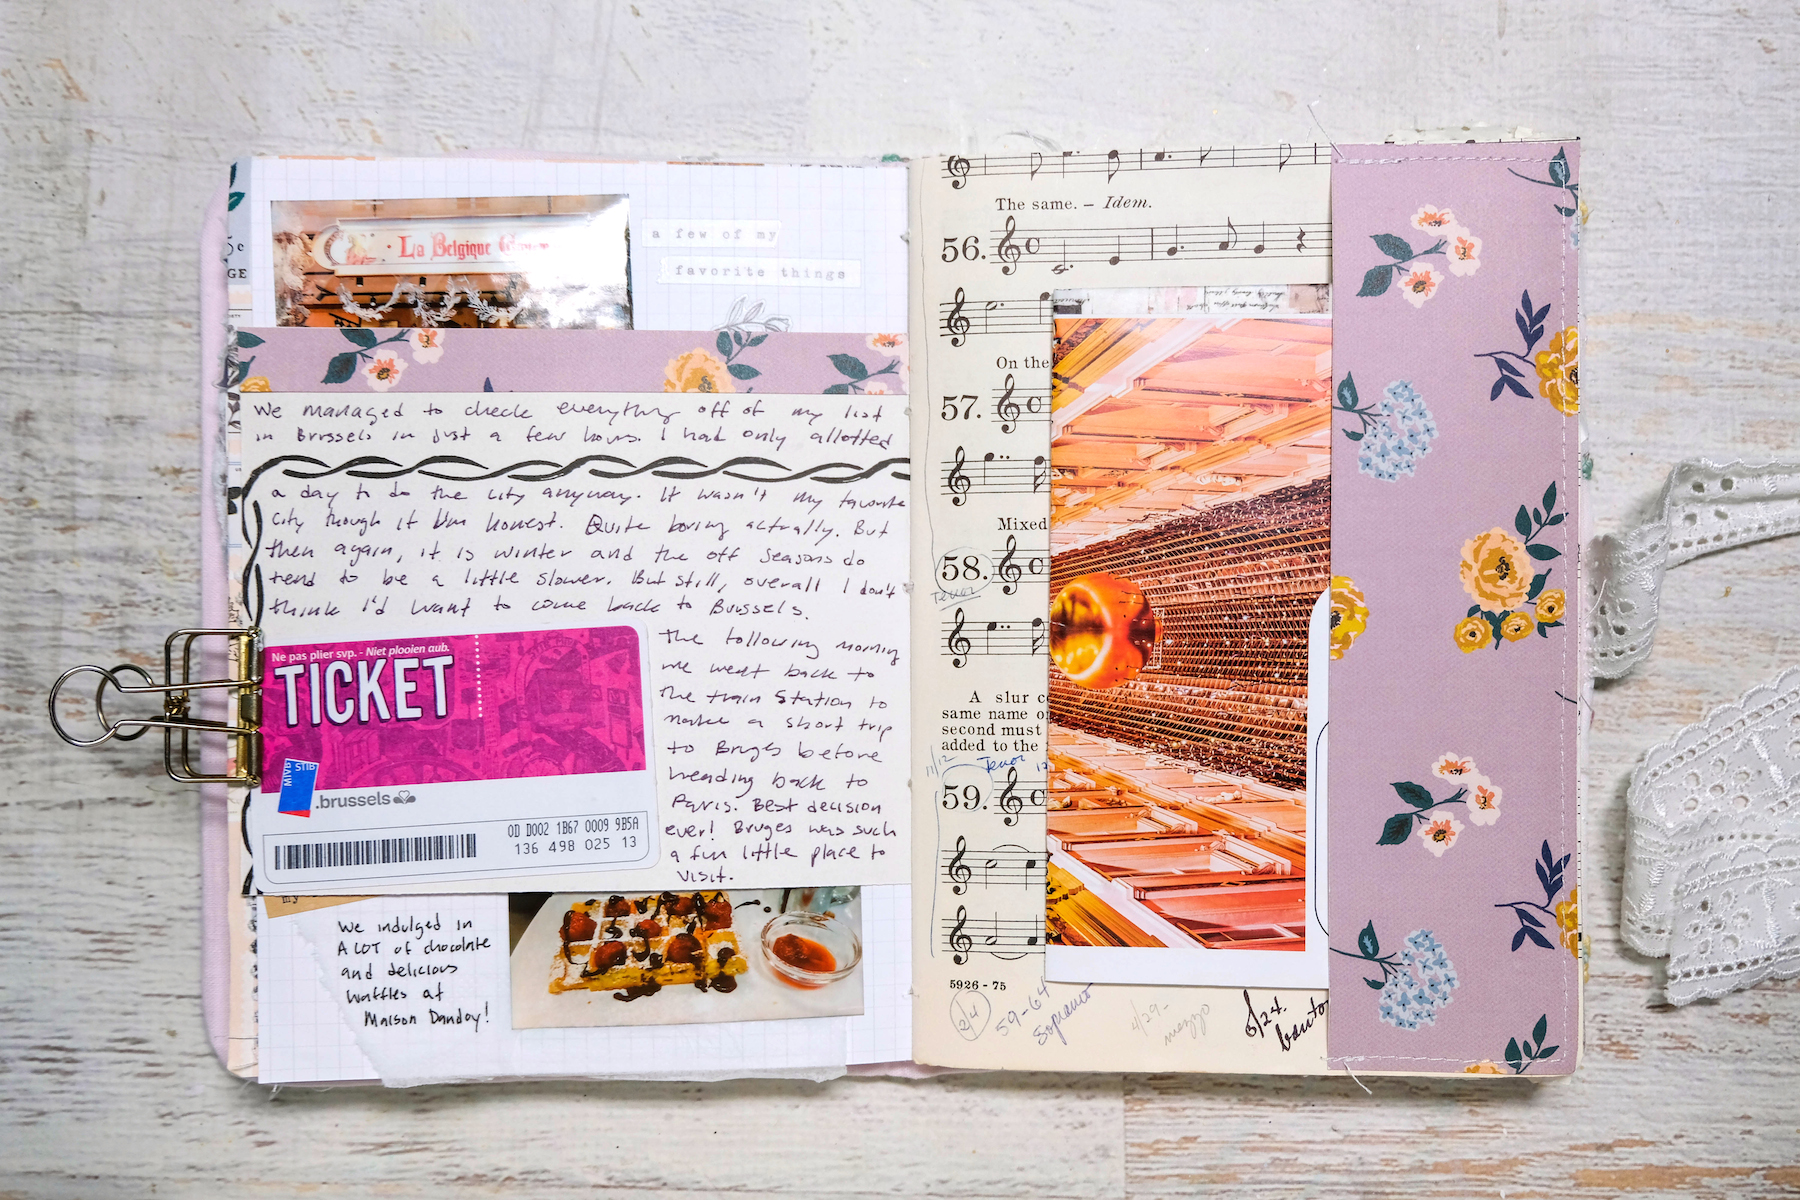 5c
GE
La Belgique
a few of my
favorite things
We managed to check everything off of my list
in Brussels in just a few hours. I had only allotted
a day to do the city anyway. It wasn't my favorite
city though if I'm honest. Quite boring actually. But
then again, it is winter and the off seasons do
tend to be a little slower. But still, overall I don't
think I'd want to come back to Brussels.
The following morning
we went back to
the train station to
make a short trip
to Bruges before
heading back to
Paris. Best decision
ever! Bruges was such
a fun little place to
visit.
Ne pas plier svp. - Niet plooien aub.
TICKET
MIVB STIB
.brussels
0D D002 1B67 0009 9B5A
136 498 025 13
my
We indulged in
A LOT of chocolate
and delicious
waffles at
Maison Dandoy!
The same. – Idem.
56.
On the
57.
Mixed
58.
Tenor
A slur
same name
second must
added to the
11/12 Tenor
59.
5926 - 75
2/4
59-64
Soprano
4/29-
mezzo
5/24.